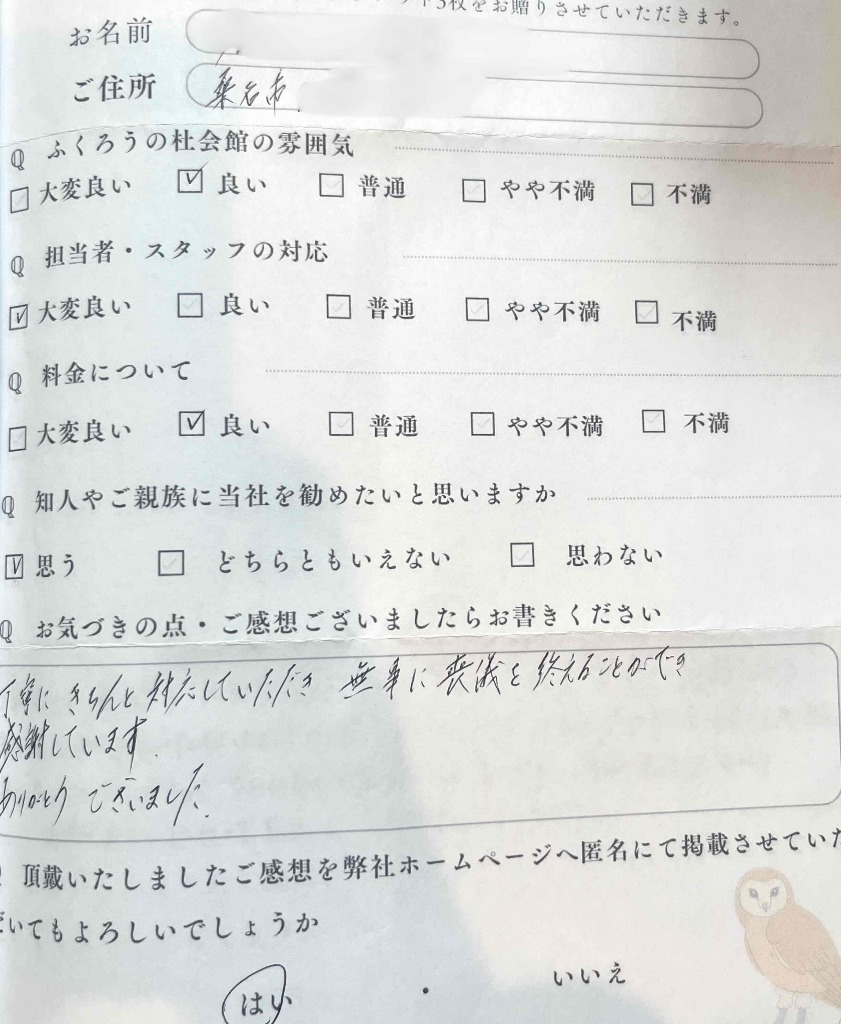 3枚をお贈りさせていただきます。
お名前
ご住所 桑名市
Q ふくろうの杜会館の雰囲気
大変良い 良い 普通 やや不満 不満
Q 担当者・スタッフの対応
大変良い 良い 普通 やや不満 不満
Q 料金について
大変良い 良い 普通 やや不満 不満
Q 知人やご親族に当社を勧めたいと思いますか
思う どちらともいえない 思わない
Q お気づきの点・ご感想ございましたらお書きください
丁寧にきちんと対応していただき 無事に喪儀を終えることができ
感謝しています.
ありがとうございました.
頂戴いたしましたご感想を弊社ホームページへ匿名にて掲載させていた
だいてもよろしいでしょうか
はい ・ いいえ